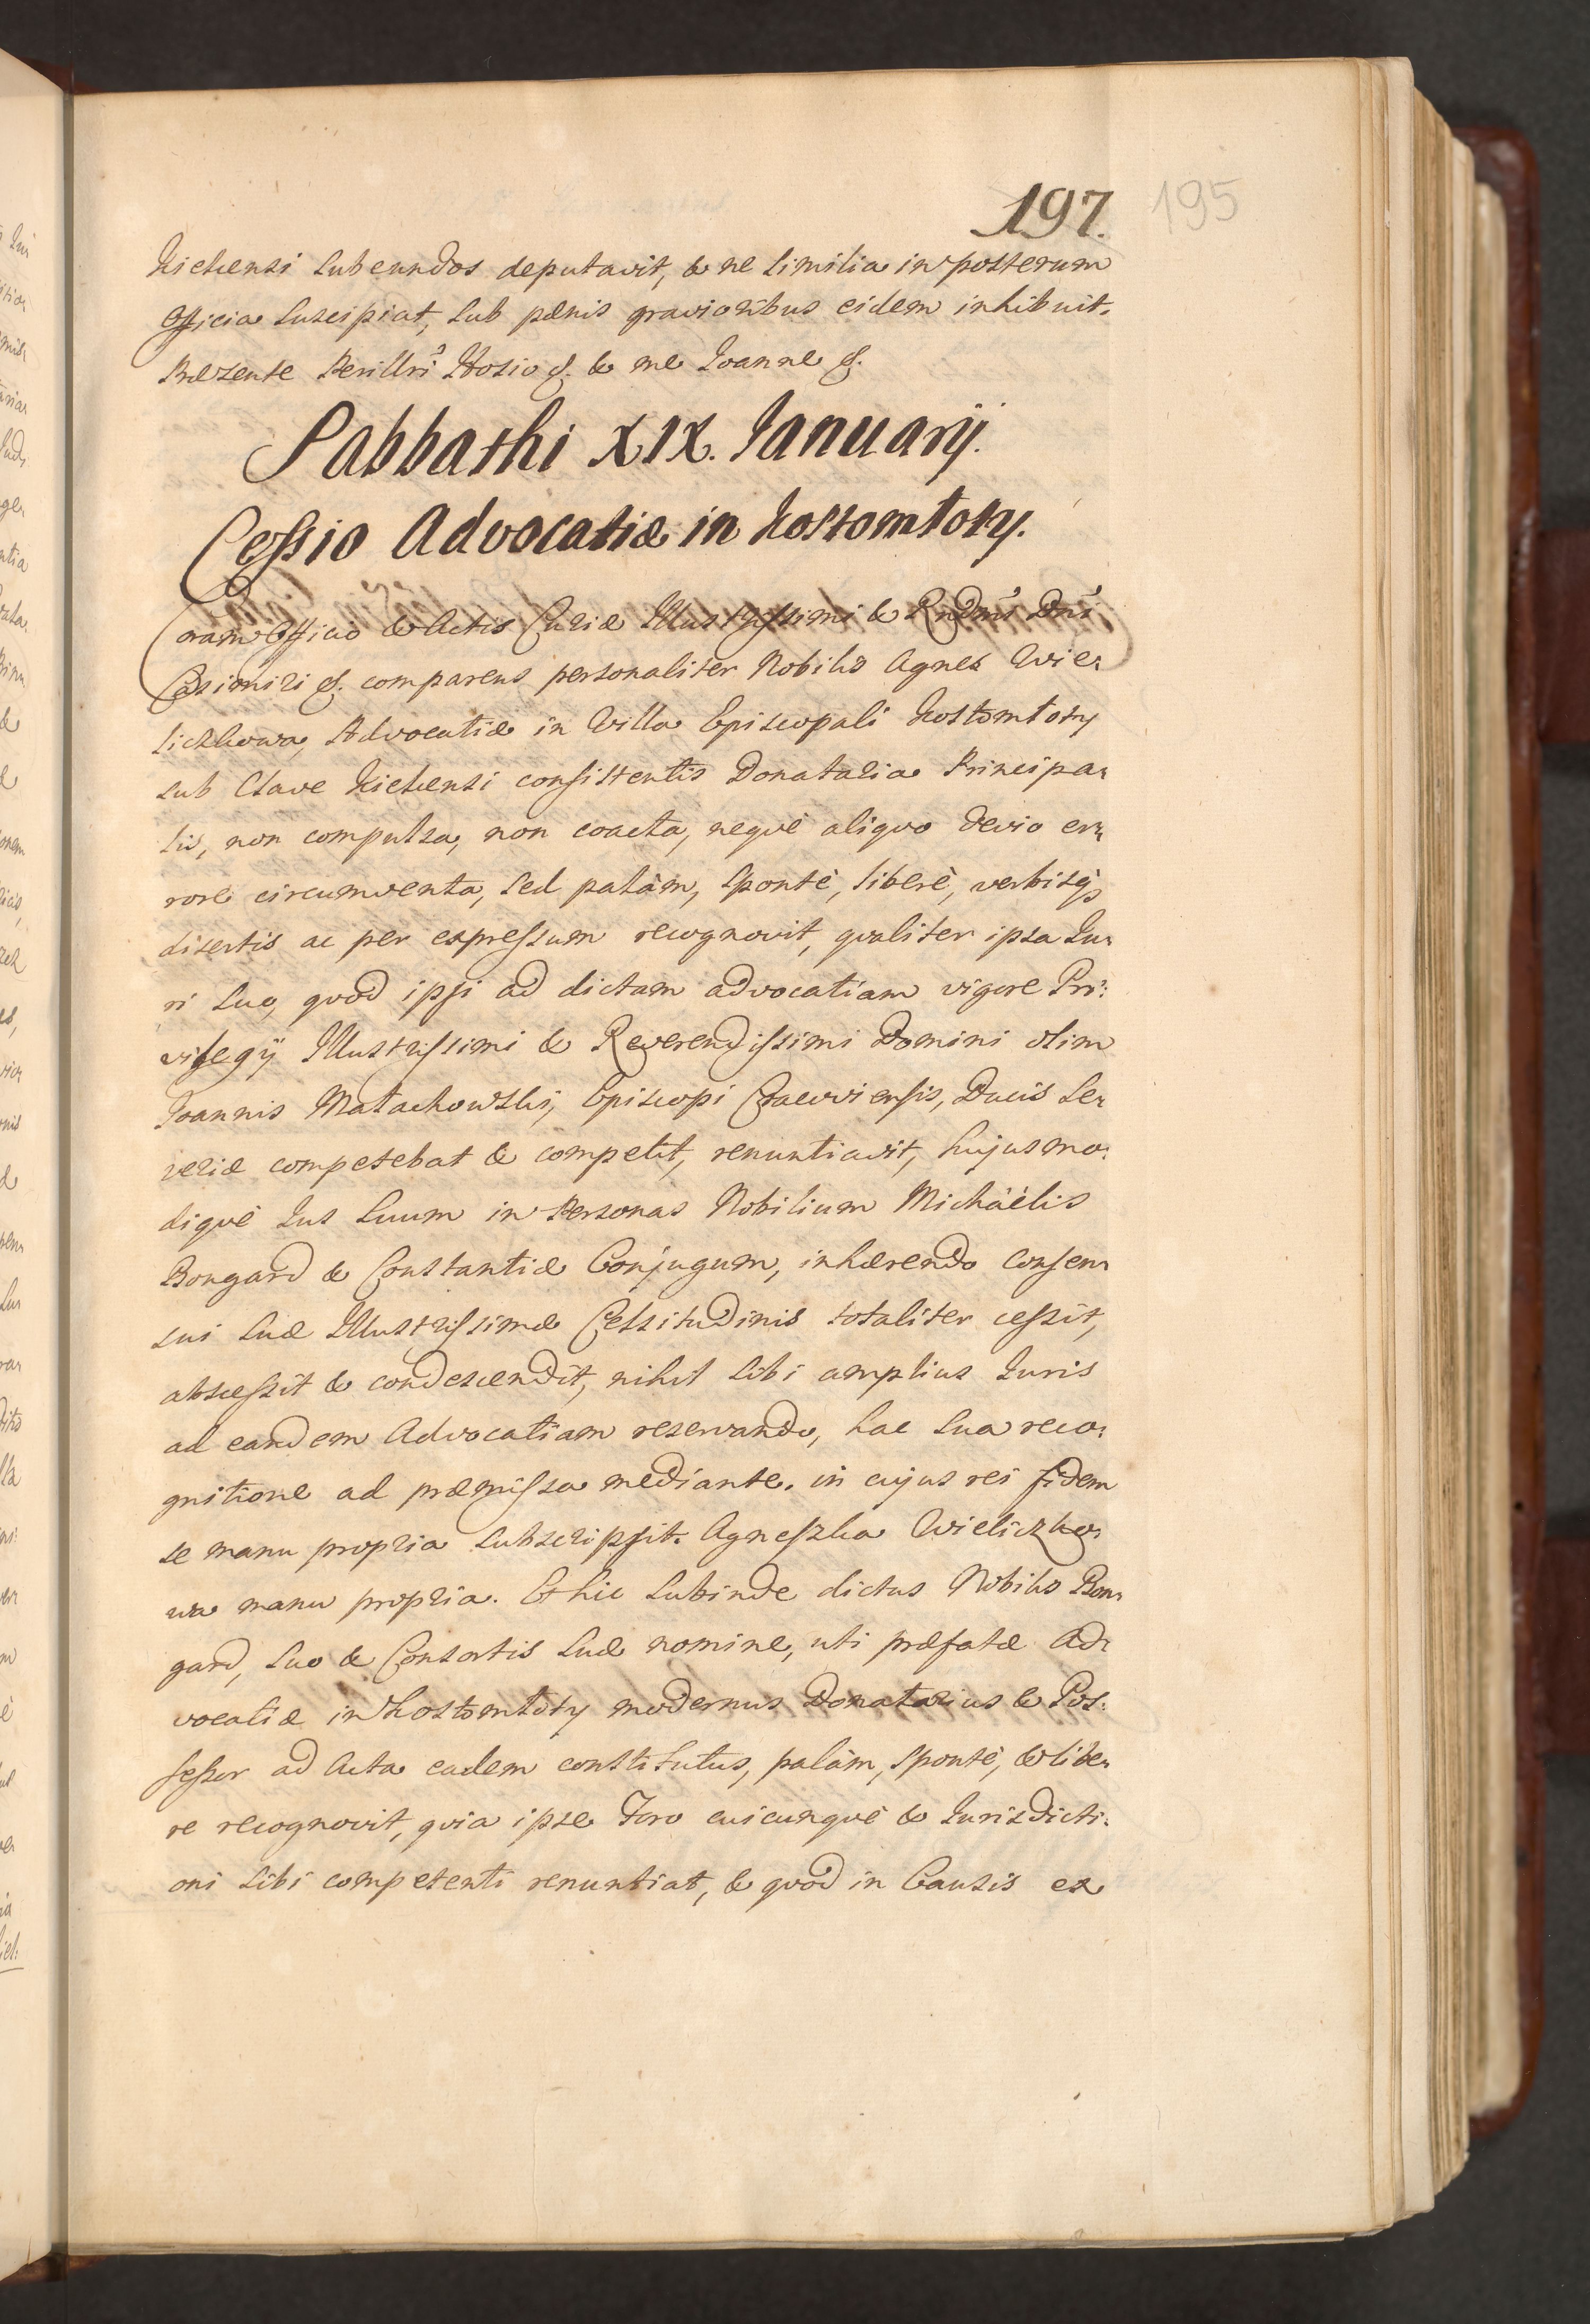 197. 195
Kielcensi subeundos deputavit, & ne similia in posterum
Officia suscipiat, sub pœnis gravioribus eidem inhibuit.
Præsente Perillri Hosio &. & me Joanne &.
Sabbathi XIX. Januarij.
Cessio Advocatiæ in Kostomłoty.
Coram Officio & Actis Curiæ Illustrissimi & Rndmi Dni
Casimiri &. comparens personaliter Nobilis Agnes Wie-
liczkowa, Advocatiæ in Villa Episcopali Kostomłoty
sub Clave Kielcensi consistentis Donataria Principa-
lis, non compulsa, non coacta, nequè aliquo devio er-
rore circumventa, sed palàm, spontè, liberè, verbisq;
disertis ac per expressum recognovit, qvaliter ipsa Ju-
ri suo, qvod ipsi ad dictam advocatiam vigore Pri:
vilegij Illustrissimi & Reverendissimi Domini olim
Joannis Małachowski, Episcopi Cracoviensis, Ducis Se-
veriæ competebat & competit, renuntiavit, hujusmo:
diquè Jus suum in Personas Nobilium Michäelis
Bongard & Constantiæ Conjugum, inhærendo Consen-
sui suæ Illustrissimæ Celsitudinis totaliter cessit,
abscessit & condescendit, nihil sibi amplius Juris
ad eandem Advocatiam reservando, hac sua reco:
gnitione ad præmissa mediante. in cujus rei fidem
se manu propria subscripsit. Agneszka Wieliczko:
wa manu propria. Et hic subinde dictus Nobilis Bon-
gard, suo & Consortis suæ nomine, uti præfatæ Ad-
vocatiæ in Kostomłoty modernus Donatarius & Pos:
sessor ad Acta eadem constitutus, palàm, spontè, & libe-
re recognovit, qvia ipse Foro cuicunquè & Jurisdicti:
oni sibi competenti renuntiat, & qvod in Causis ex